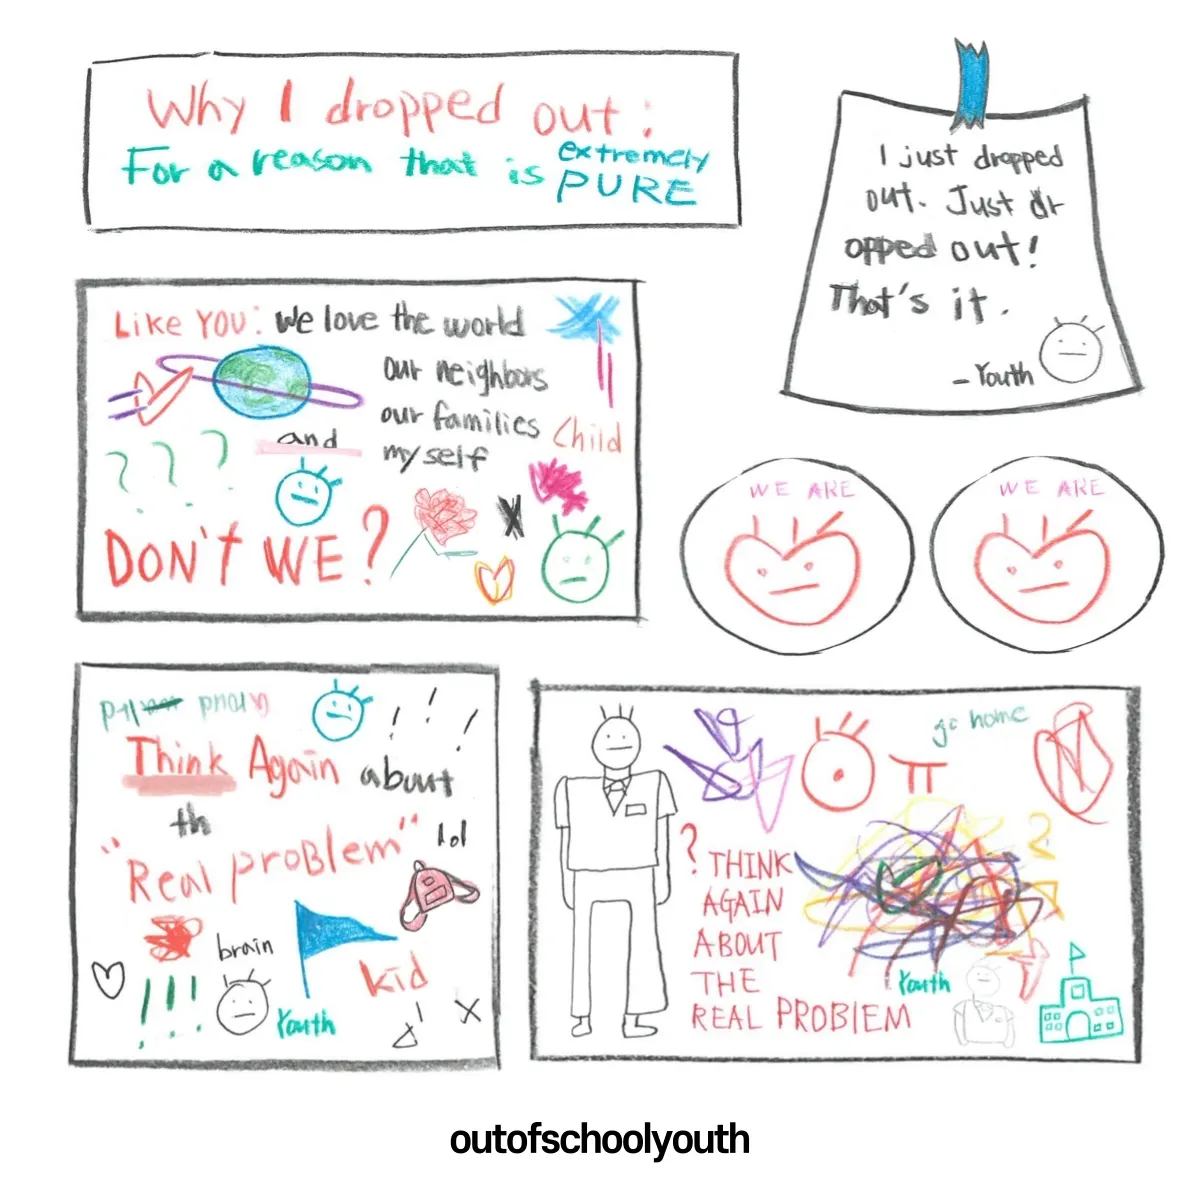 Why I dropped out:
For a reason that is extremely
PURE
I just dropped
out. Just dr
opped out!
That's it.
- Youth
Like YOU: We love the world
our neighbors
our families
Child
and
myself
? ? ?
DON'T WE?
WE ARE
WE ARE
! ! !
Think Again about
th
"Real problem"
lol
brain
!!!
kid
Youth
!
go home
? THINK
AGAIN
ABOUT
THE
REAL PROBLEM
Youth
outofschoolyouth